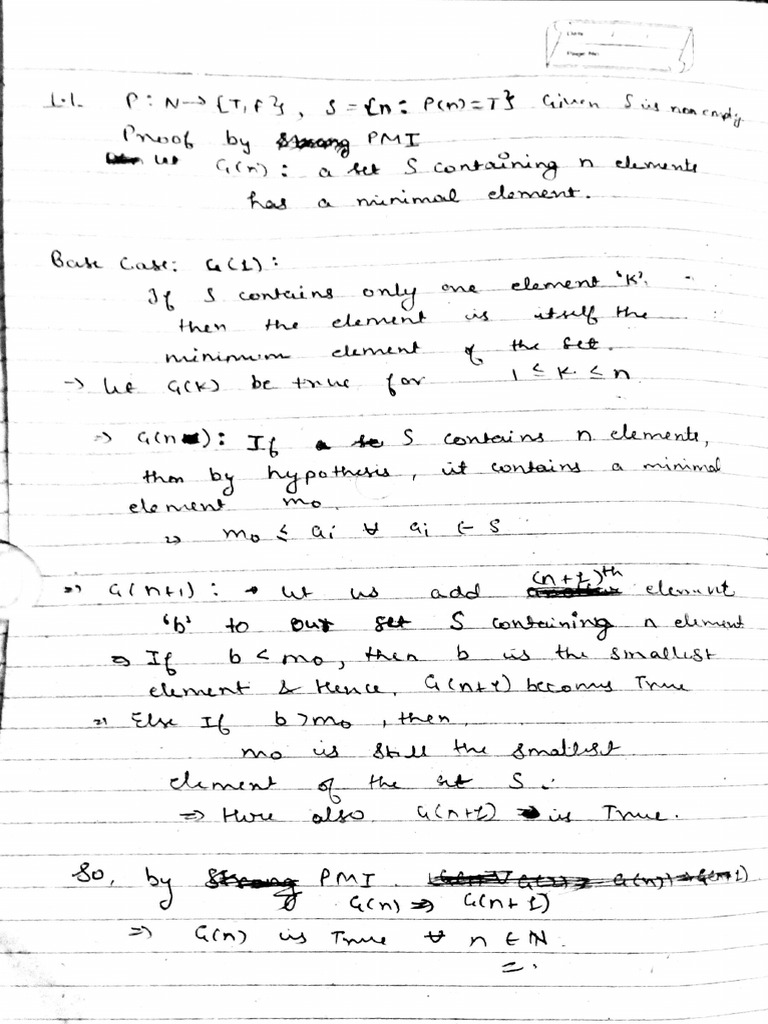 Date
Page No.
1.1. P : N → {T, F}, S = {n : P(n) = T} Given S is non empty
Proof by PMI
Let G(n) : a set S containing n elements
has a minimal element.
Base Case: G(1) :
If S contains only one element 'K'.
then the element is itself the
minimum element of the set.
→ Let G(K) be true for 1 ≤ K ≤ n
⇒ G(n) : If S contains n elements,
then by hypothesis, it contains a minimal
element m₀.
⇒ m₀ ≤ aᵢ ∀ aᵢ ∈ S
⇒ G(n+1) : → Let us add (n+1)ᵗʰ element
'b' to our set S containing n element
⇒ If b < m₀, then b is the smallest
element & Hence, G(n+1) becomes True
⇒ Else If b > m₀, then,
m₀ is still the smallest
element of the set S.
⇒ Here also G(n+1) is True.
So, by PMI.
G(n) ⇒ G(n+1)
⇒ G(n) is True ∀ n ∈ N.